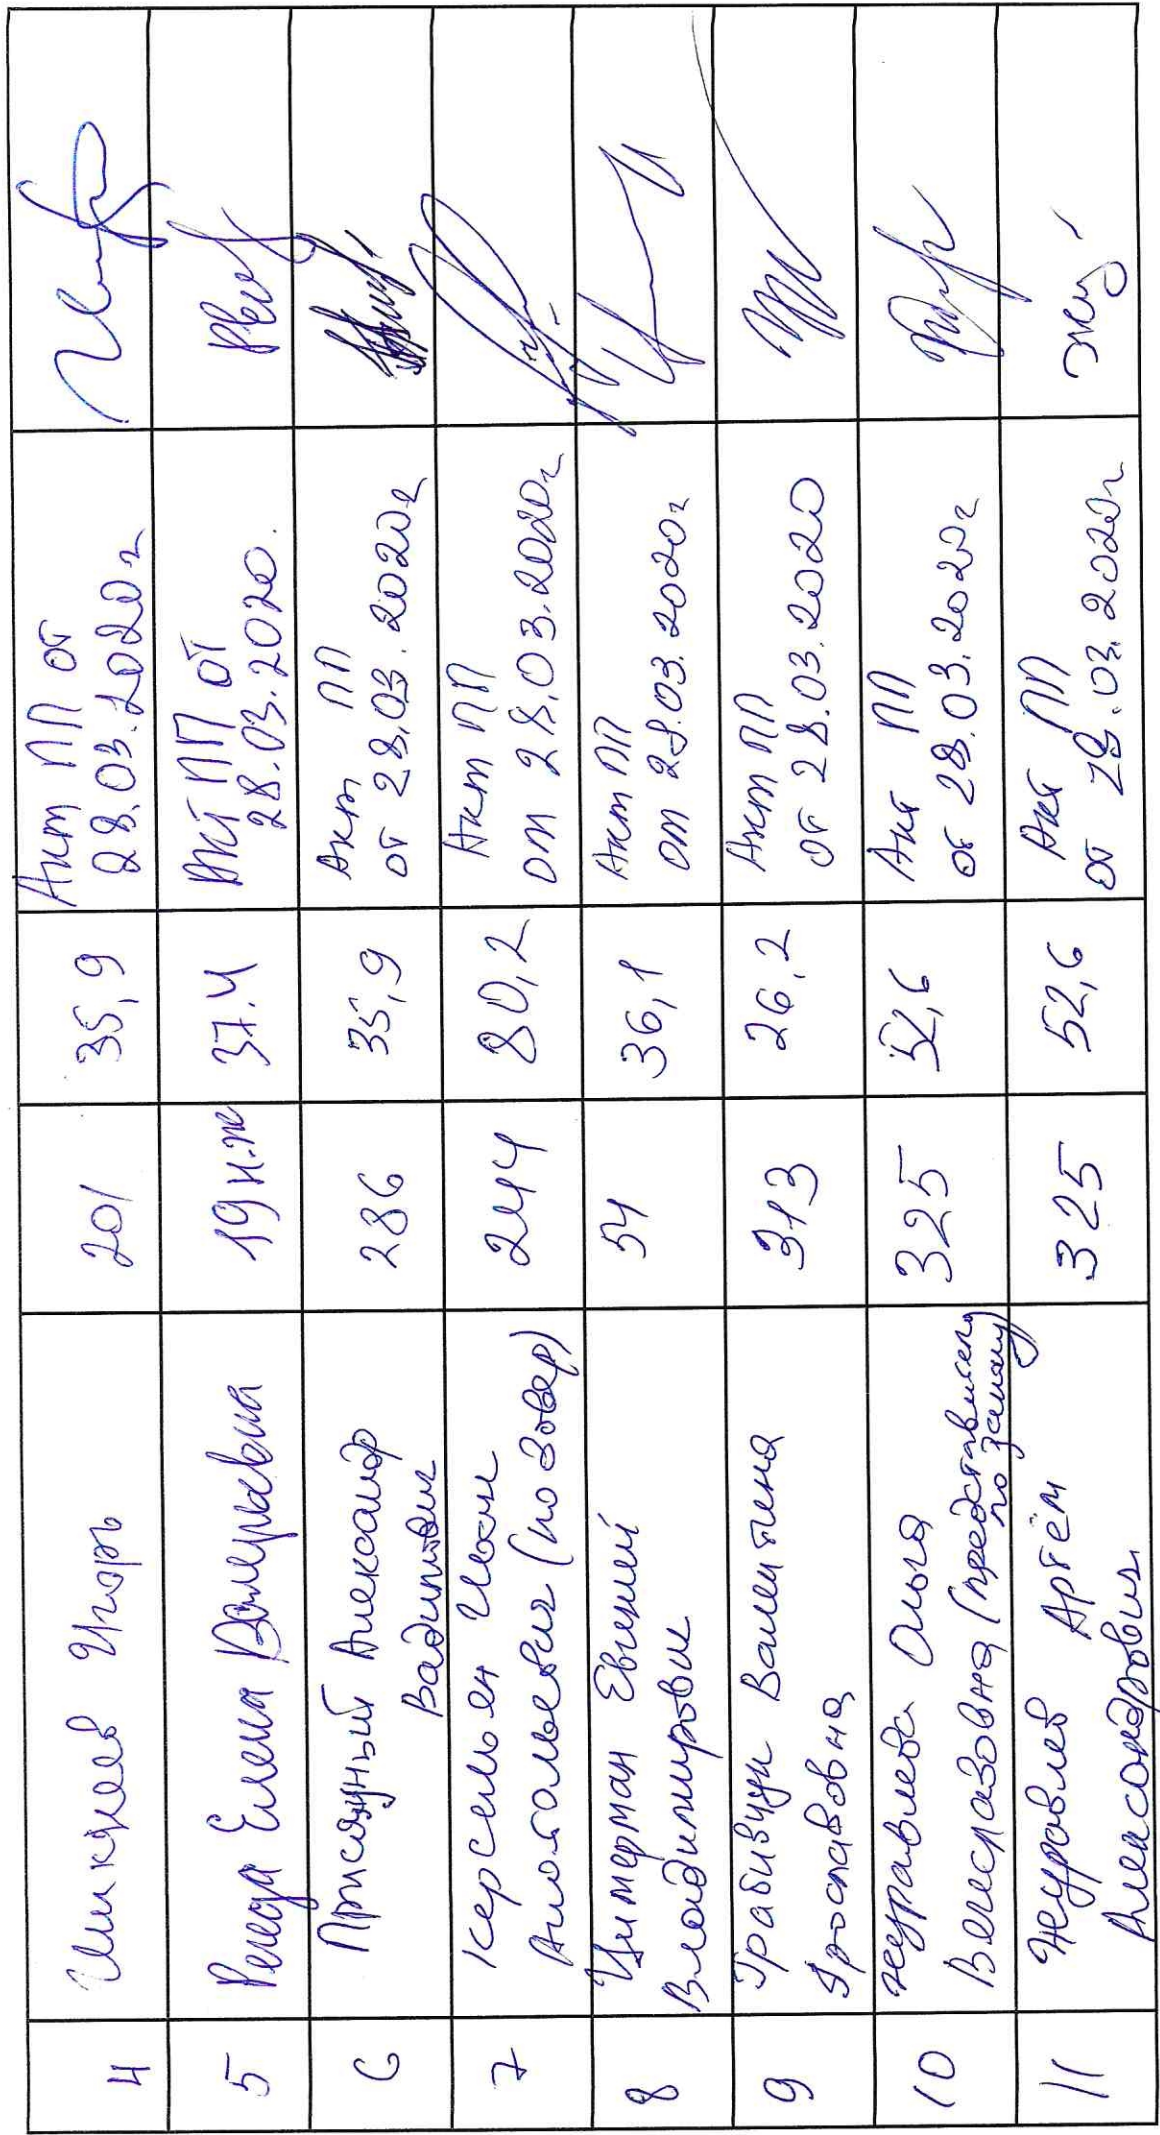 4 Шикреев Игорь 201 35,9 Акт ПП от
28.03.2020г
5 Елена Валерьевна 19 н.ж 37.4 Акт ПП от
28.03.2020.
6 Присяжный Александр
Вадимович 286 35,9 Акт ПП
от 28.03.2020г
7 Керсельян Иван
Анатольевич (по довер) 244 80,2 Акт ПП
от 28.03.2020г
8 Цимерман Евгений
Владимирович 54 36,1 Акт ПП
от 28.03.2020г
9 Грабивчук Валентина
Ярославовна 313 26,2 Акт ПП
от 28.03.2020
10 Журавлева Ольга
Вячеславовна (представитель
по закону) 325 52,6 Акт ПП
от 28.03.2020г
11 Журавлев Артём
Александрович 325 52,6 Акт ПП
от 28.03.2020г